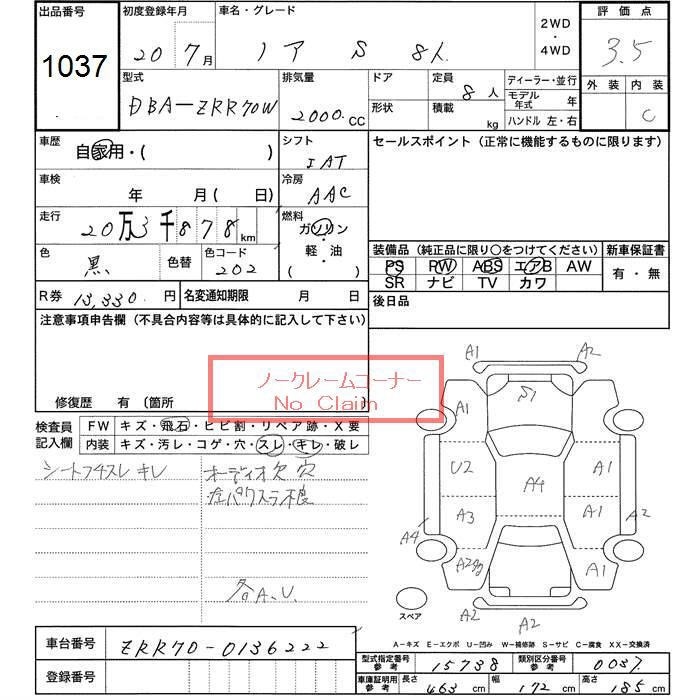 出品番号
1037
初度登録年月
20 7月
車名・グレード
ノア S 8人
2WD
・
4WD
評価点
3.5
外装 内装
C
型式
DBA-ZRR70W
排気量
2000.cc
ドア
形状
定員 8人
積載 kg
ディーラー・並行
モデル年式 年
ハンドル 左・右
車歴
自家用・( )
シフト
IAT
セールスポイント(正常に機能するものに限ります)
車検
年 月(日)
冷房
AAC
走行
20万3千878km
燃料
ガソリン
・
軽・油
( )
色
黒
色替
色コード
202
装備品(純正品に限り○をつけてください)
新車保証書
PS PW ABS エアB AW
SR ナビ TV カワ
有・無
R券 13,330円
名変通知期限 月 日
後日品
注意事項申告欄(不具合内容等は具体的に記入して下さい)
ノークレームコーナー
No Claim
修復歴 有(箇所 )
検査員
記入欄
FW キズ・飛石・ヒビ割・リペア跡・X要
内装 キズ・汚レ・コゲ・穴・スレ・キレ・破レ
シートフチスレ キレ
オーディオ欠 穴
左パワスラ不良
各A.U.
A1 A2
A1 S1
U2 A4 A1
A3 A1
A4 A2
A1
A2
A2
スペア
A-キズ E-エクボ U-凹み W-補修跡 S-サビ C-腐食 XX-交換済
車台番号
ZRR70-0136222
登録番号
型式指定番号
参考
15738
類別区分番号
参考
0037
車庫証明用
参考
長さ 463cm
幅 172cm
高さ 185cm